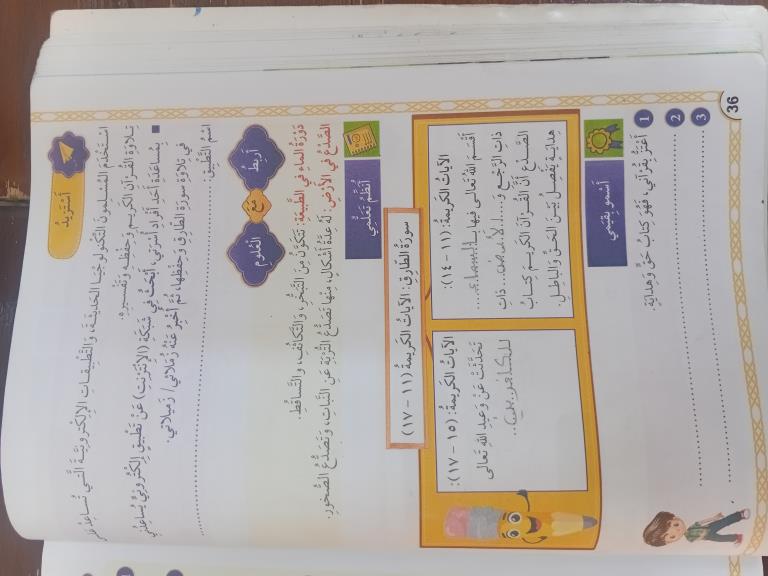 أَسْتَزِيدُ
اسْتَخْدَمَ المُسْلِمُونَ التِّكْنُولُوجْيَا الحَدِيثَةَ، وَالتَّطْبِيقَاتِ الإِلِكْتُرُونِيَّةَ الَّتِي تُسَاعِدُ عَلَى
تِلَاوَةِ القُرْآنِ الكَرِيمِ وَحِفْظِهِ وَتَفْسِيرِهِ.
■ بِمُسَاعَدَةِ أَحَدِ أَفْرَادِ أُسْرَتِي، أَبْحَثُ فِي شَبَكَةِ (الإِنْتَرْنِت) عَنْ تَطْبِيقٍ إِلِكْتُرُونِيٍّ يُسَاعِدُنِي
فِي تِلَاوَةِ سُورَةِ الطَّارِقِ وَحِفْظِهَا، ثُمَّ أُخْبِرُ عَنْهُ زُمَلَائِي/ زَمِيلَاتِي.
اسْمُ التَّطْبِيقِ: ........................
أَرْبِطُ
مَعَ
العُلُومِ
دَوْرَةُ المَاءِ فِي الطَّبِيعَةِ: تَتَكَوَّنُ مِنَ التَّبَخُّرِ، وَالتَّكَاثُفِ، وَالتَّسَاقُطِ.
الصَّدْعُ فِي الأَرْضِ: لَهُ عِدَّةُ أَشْكَالٍ، مِنْهَا تَصَدُّعُ التُّرْبَةِ عَنِ النَّبَاتِ، وَتَصَدُّعُ الصُّخُورِ.
أُنَظِّمُ تَعَلُّمِي
سُورَةُ الطَّارِقِ: الآيَاتُ الكَرِيمَةُ (١١ - ١٧)
الآيَاتُ الكَرِيمَةُ: (١١ - ١٤):
أَقْسَمَ اللهُ تَعَالَى فِيهَا بِـ السماء
ذَاتِ الرَّجْعِ وَ... الأرض ... ذَاتِ
الصَّدْعِ أَنَّ القُرْآنَ الكَرِيمَ كِتَابُ
هِدَايَةٍ يَفْصِلُ بَيْنَ الحَقِّ وَالبَاطِلِ.
الآيَاتُ الكَرِيمَةُ: (١٥ - ١٧):
تَحَدَّثَتْ عَنْ وَعِيدِ اللهِ تَعَالَى
للكافرين
أَسْمُو بِقِيَمِي
1 أَعْتَزُّ بِقُرْآنِي، فَهُوَ كِتَابُ حَقٍّ وَهِدَايَةٍ.
2 ........................
3 ........................
36